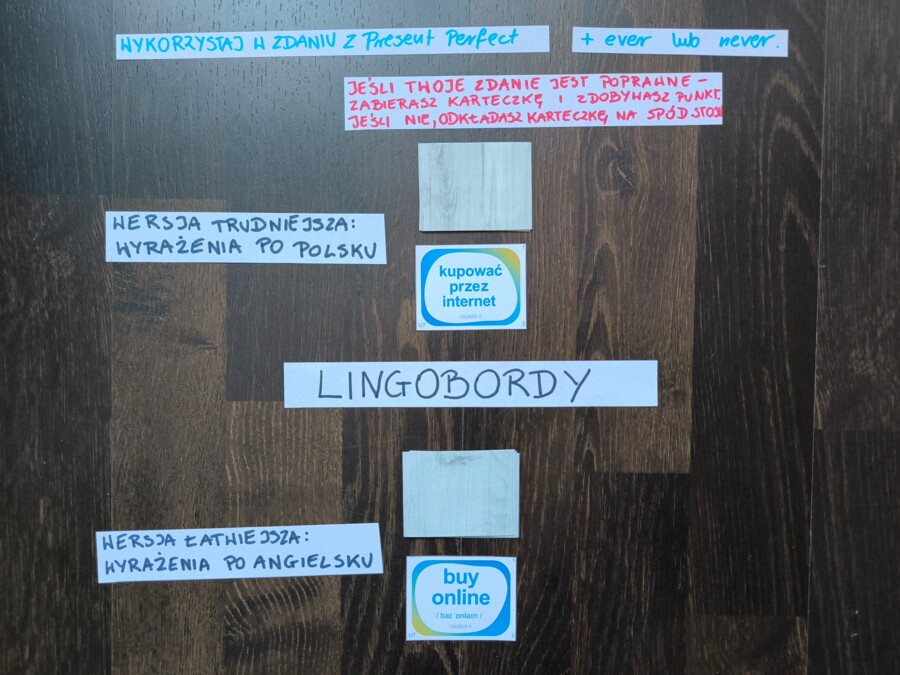 WYKORZYSTAJ W ZDANIU Z Present Perfect + ever lub never.
JEŚLI TWOJE ZDANIE JEST POPRAWNE -
ZABIERASZ KARTECZKĘ I ZDOBYWASZ PUNKT.
JEŚLI NIE, ODKŁADASZ KARTECZKĘ NA SPÓD STOSU
WERSJA TRUDNIEJSZA:
WYRAŻENIA PO POLSKU
kupować
przez
internet
U7 2
LINGOBORDY
WERSJA ŁATWIEJSZA:
WYRAŻENIA PO ANGIELSKU
buy
online
/ baɪ ˈɒnlaɪn /
U7 2